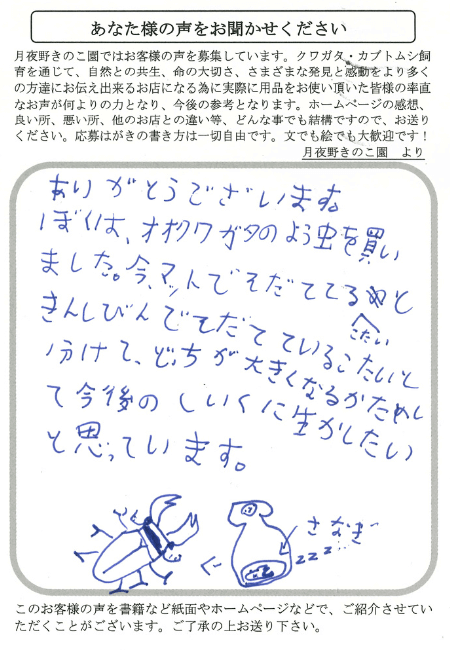 あなた様の声をお聞かせください
月夜野きのこ園ではお客様の声を募集しています。クワガタ・カブトムシ飼
育を通じて、自然との共生、命の大切さ、さまざまな発見と感動をより多く
の方達にお伝え出来るお店になる為に実際に用品をお使い頂いた皆様の率直
なお声が何よりの力となり、今後の参考となります。ホームページの感想、
良い所、悪い所、他のお店との違い等、どんな事でも結構ですので、お送り
ください。応募はがきの書き方は一切自由です。文でも絵でも大歓迎です！
月夜野きのこ園　より
ありがとうございます。
ぼくは、オオクワガタのよう虫を買い
ました。今、マットでそだててる
こたい
と
きんしびんでそだてているこたいと
分けて、どっちが大きくなるかためし
て今後のしいくに生かしたい
と思っています。
さなぎ
zzz…
このお客様の声を書籍など紙面やホームページなどで、ご紹介させてい
ただくことがございます。ご了承の上お送り下さい。